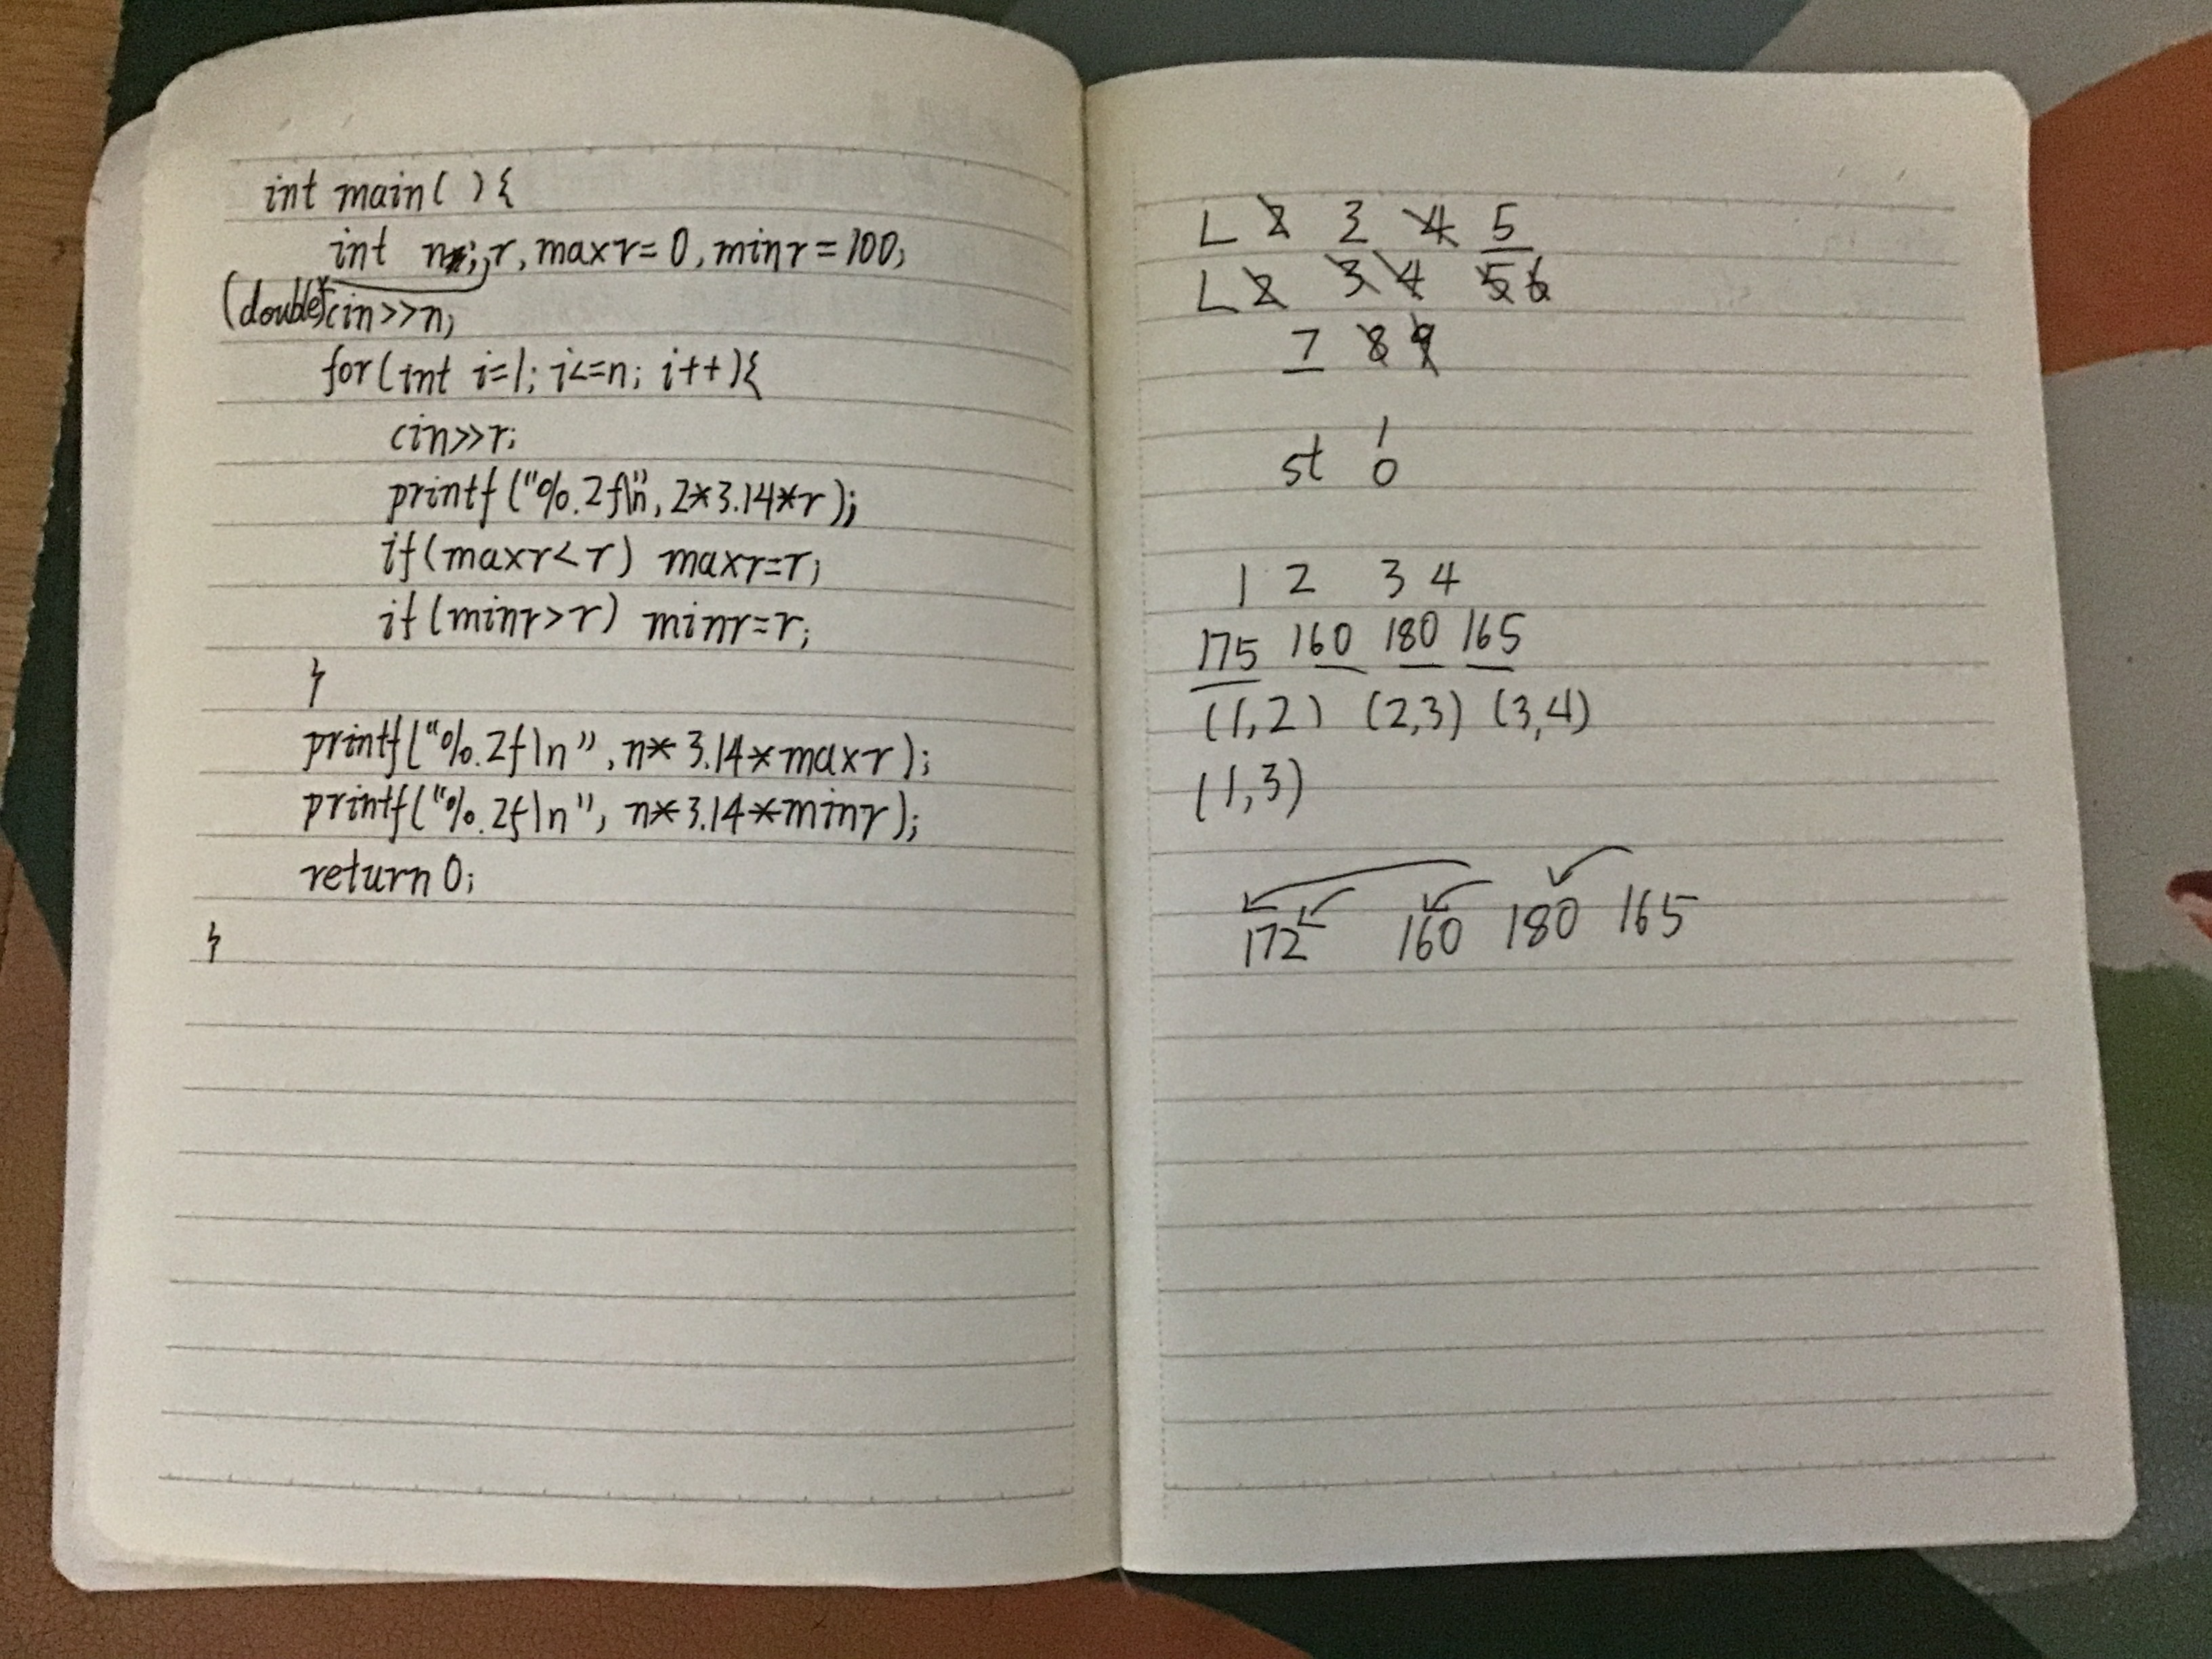 int main( ){
int n; r, maxr=0, minr=100;
(double) cin>>n;
for(int i=1; i<=n; i++){
cin>>r;
printf("%.2f\n", 2*3.14*r);
if(maxr<r) maxr=r;
if(minr>r) minr=r;
}
printf("%.2f\n", n*3.14*maxr);
printf("%.2f\n", n*3.14*minr);
return 0;
}
1 2 3 4 5
1 2 3 4 5 6
7 8 9
1
st 0
1 2 3 4
175 160 180 165
(1,2) (2,3) (3,4)
(1,3)
172 160 180 165